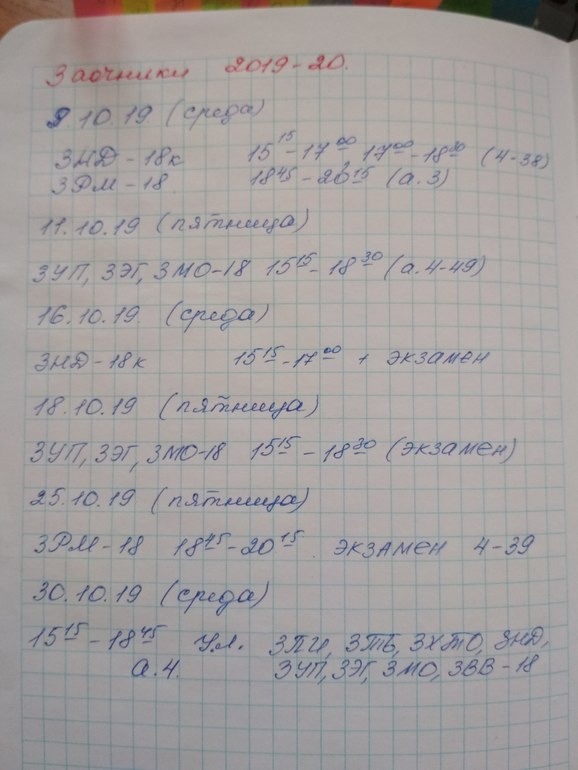 Заочники 2019-20.
9.10.19 (среда)
ЗНД-18к 15¹⁵-17⁰⁰, 17⁰⁰-18³⁰ (4-38)
ЗРМ-18 18⁴⁵-20¹⁵ (а.3)
11.10.19 (пятница)
ЗУП, ЗЭГ, ЗМО-18 15¹⁵-18³⁰ (а.4-49)
16.10.19. (среда)
ЗНД-18к 15¹⁵-17⁰⁰ + экзамен
18.10.19 (пятница)
ЗУП, ЗЭГ, ЗМО-18 15¹⁵-18³⁰ (экзамен)
25.10.19 (пятница)
ЗРМ-18 18⁴⁵-20¹⁵. экзамен 4-39
30.10.19 (среда)
15¹⁵-18⁴⁵ У.Л. ЗПИ, ЗТБ, ЗХТО, ЗНД,
а.4. ЗУП, ЗЭГ, ЗМО, ЗВВ-18